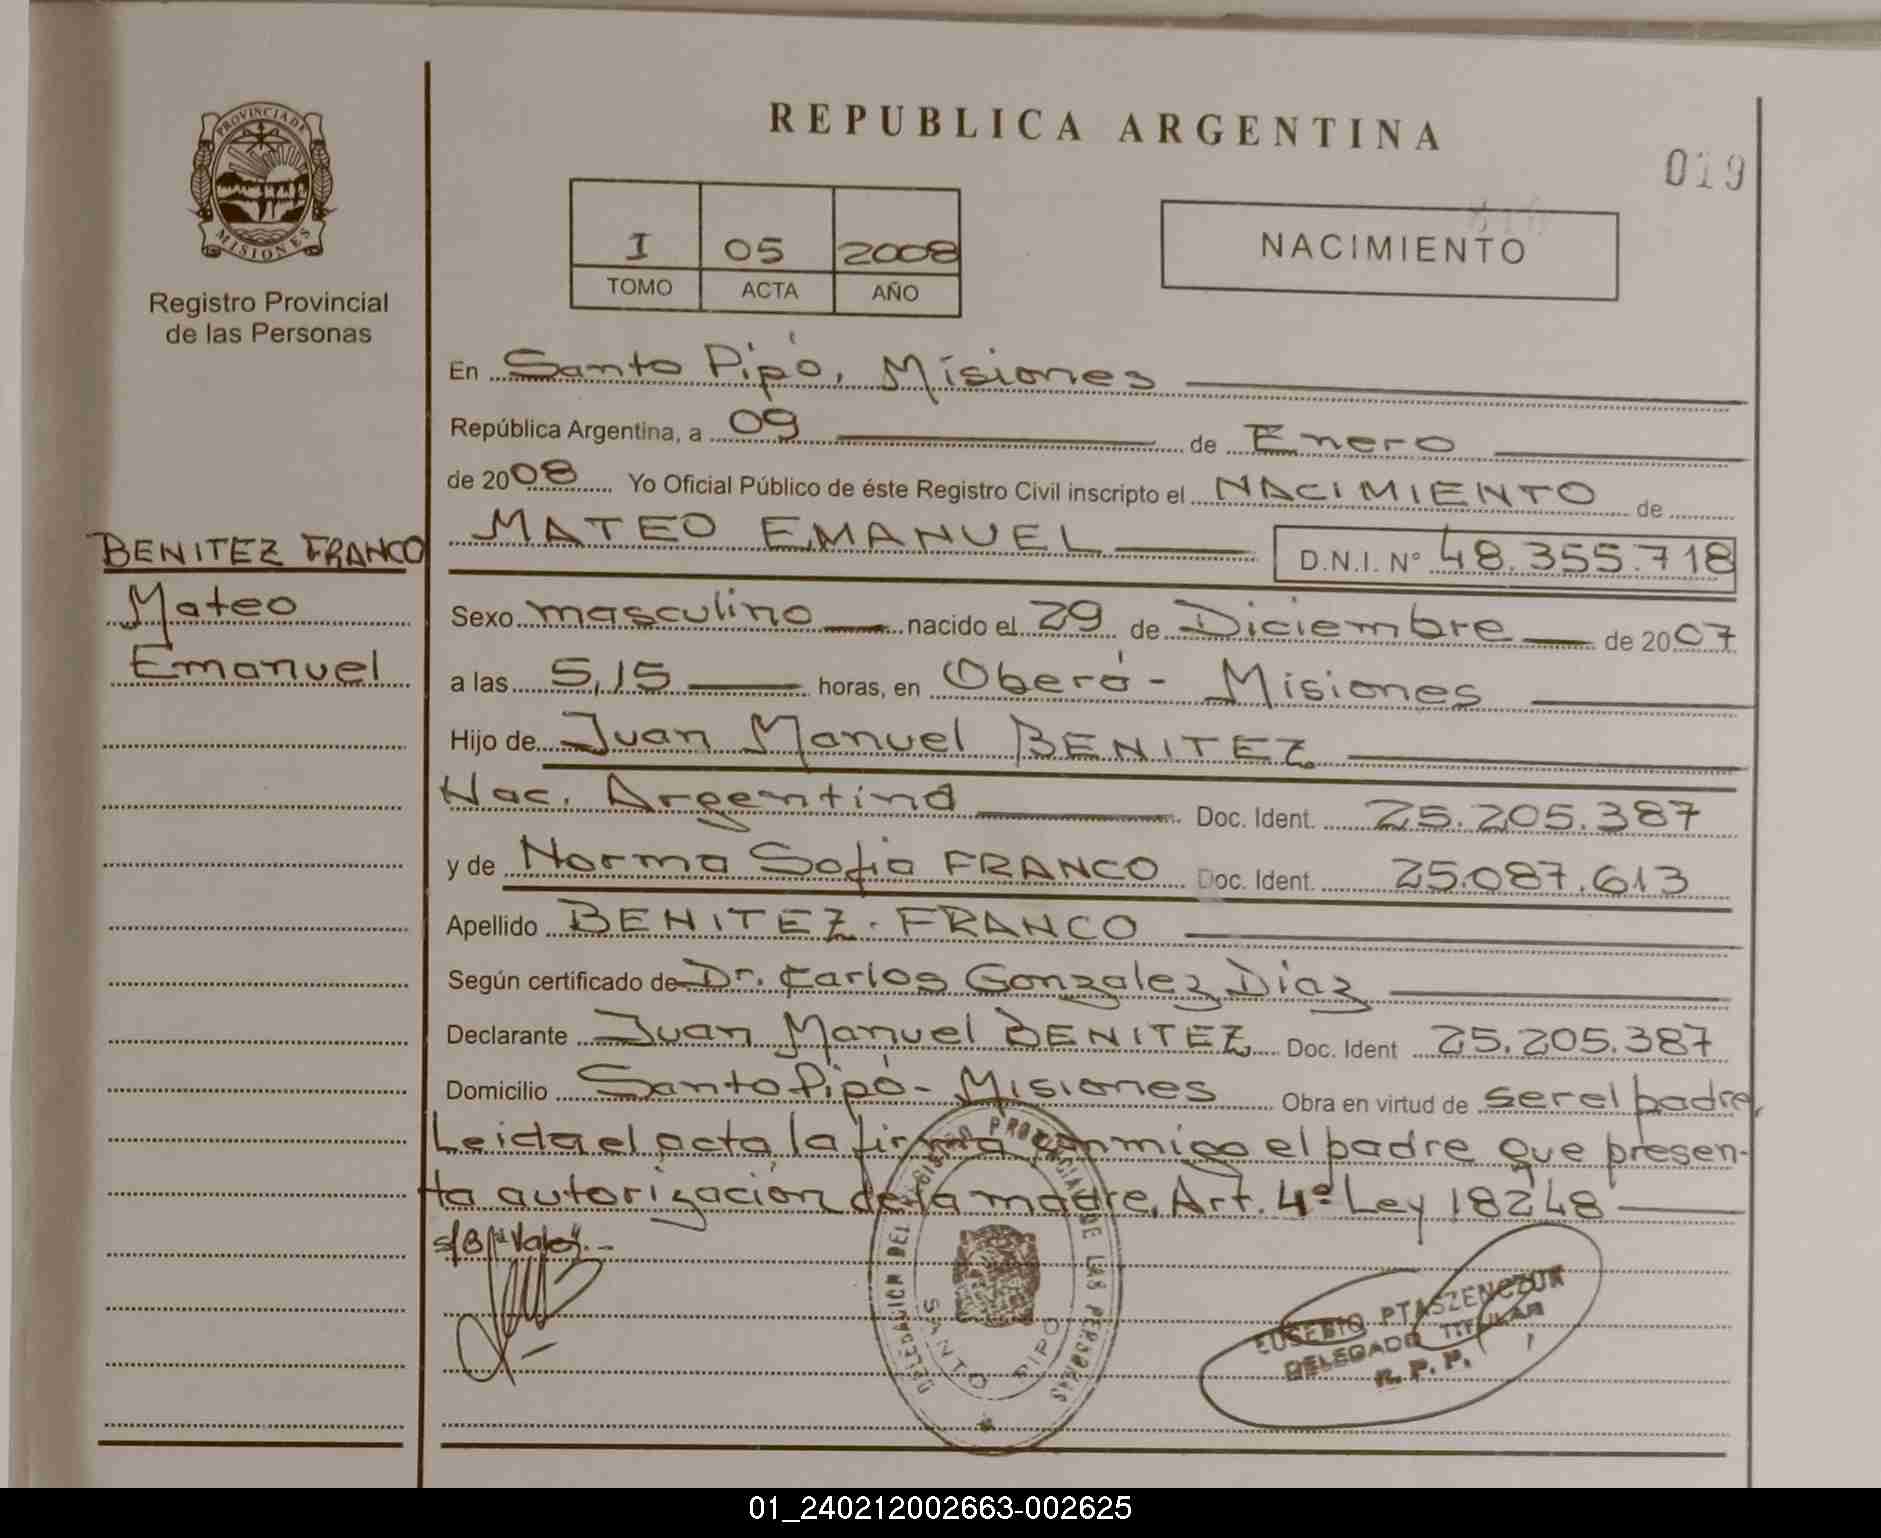 REPUBLICA ARGENTINA
019
PROVINCIA DE MISIONES
Registro Provincial
de las Personas
I 05 2008
TOMO ACTA AÑO
NACIMIENTO
En Santo Pipó, Misiones
República Argentina, a 09 de Enero
de 2008 Yo Oficial Público de éste Registro Civil inscripto el NACIMIENTO de
BENITEZ FRANCO
Mateo
Emanuel
MATEO EMANUEL D.N.I. Nº 48.355.718
Sexo masculino nacido el 29 de Diciembre de 2007
a las 5,15 horas, en Oberá - Misiones
Hijo de Juan Manuel BENITEZ
Nac. Argentina Doc. Ident. 25.205.387
y de Norma Sofia FRANCO Doc. Ident. 25.087.613
Apellido BENITEZ - FRANCO
Según certificado de Dr. Carlos Gonzalez Diaz
Declarante Juan Manuel BENITEZ Doc. Ident 25.205.387
Domicilio Santo Pipó - Misiones Obra en virtud de ser el padre,
Leida el acta la firma conmigo el padre que presen-
ta autorización de la madre. Art. 4º Ley 18248
DELEGACION DEL REGISTRO PROVINCIAL DE LAS PERSONAS
SANTO PIPO
EUSEBIO PTASZENCZUK
DELEGADO TITULAR
R. P. P.
01_240212002663-002625